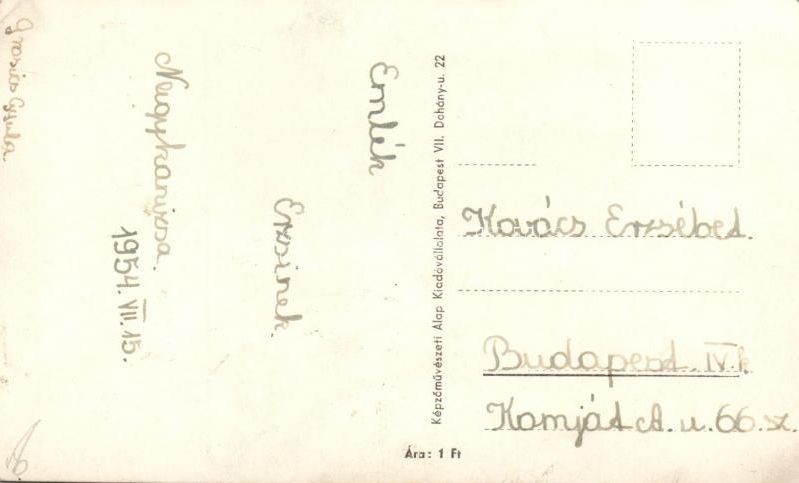 Emlék
Erzsinek.
Nagykanizsa.
1954. VII. 15.
Gyula
Képzőművészeti Alap Kiadóvállalata, Budapest VII. Dohány-u. 22
Kovács Erzsébet.
Budapest. IV. k.
Komját A. u. 66. sz.
Ára: 1 Ft